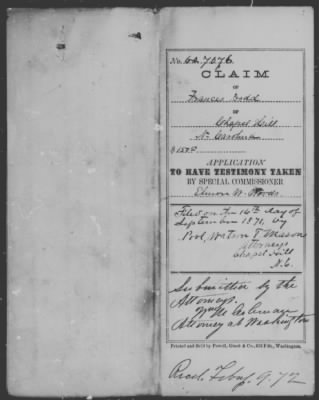 No. 60.7076
CLAIM
OF
Frances Todd
OF
Chapel Hill
No Carolina
$ 158.
APPLICATION
TO HAVE TESTIMONY TAKEN
BY SPECIAL COMMISSIONER
W. Woods
Filed on the 16th day of
September 1871, by
Pool, Watson & Mason
Attorneys
Chapel Hill
N.C.
Submitted by the
Attorneys.
Attorney at Washington
Printed and Sold by Powell, Ginck & Co., 633 F St., Washington.
Recd. Feby. 9. 72